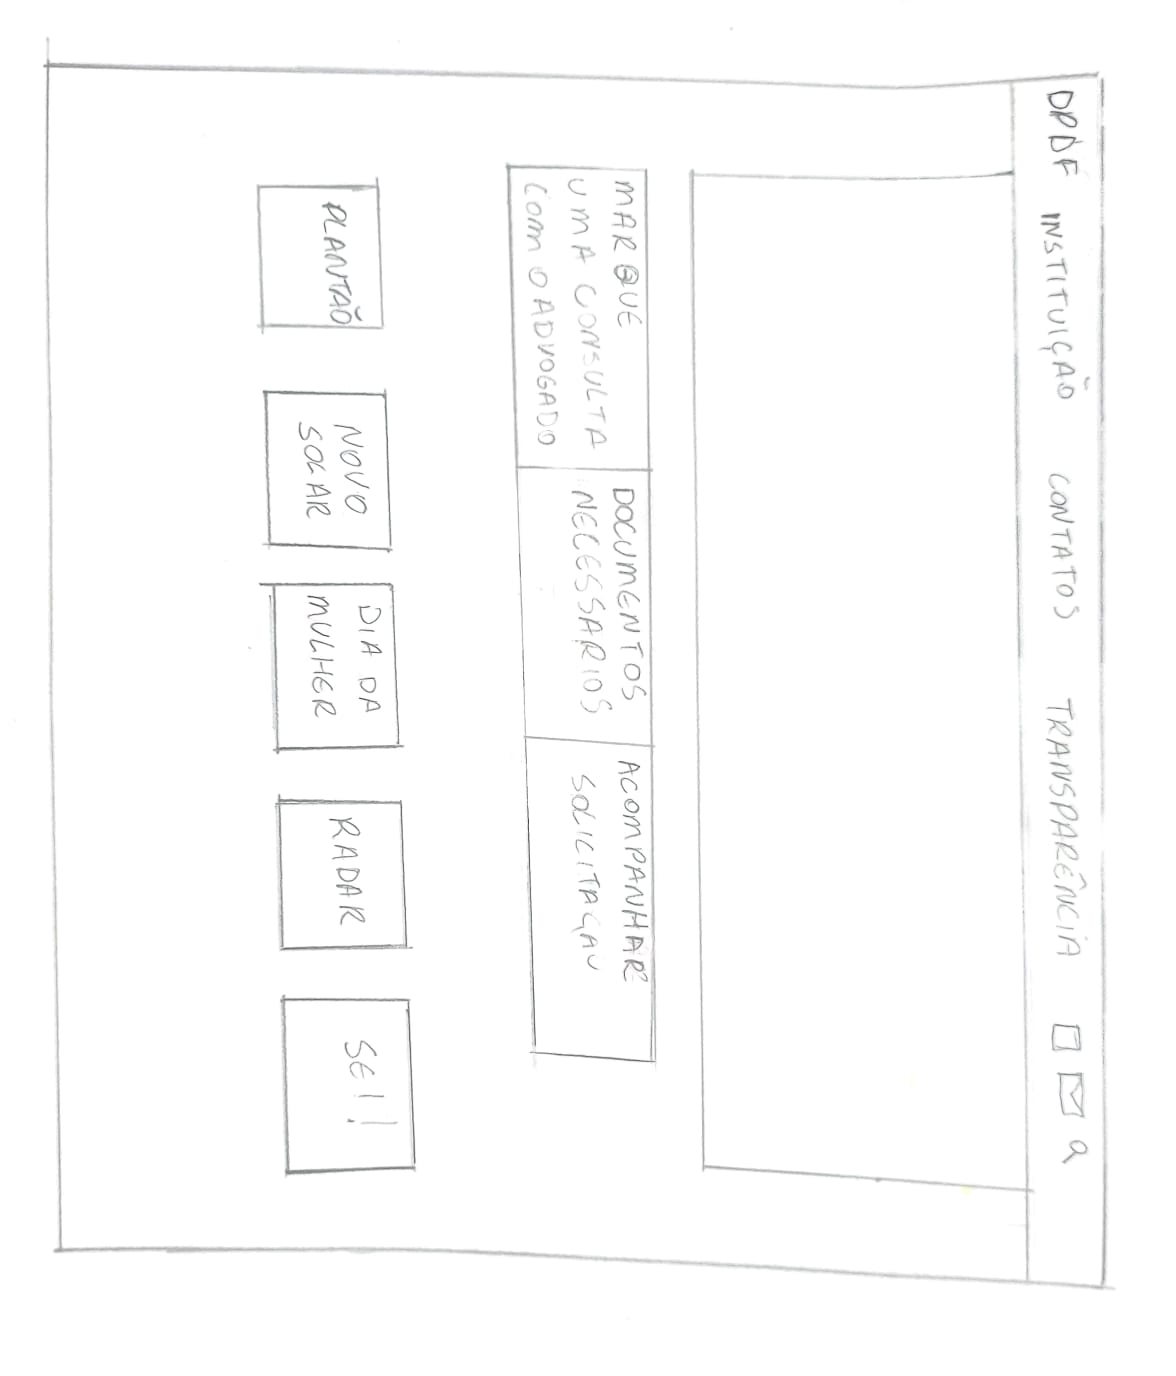 DPDF INSTITUIÇÃO CONTATOS TRANSPARÊNCIA
MARQUE
UMA CONSULTA
COM O ADVOGADO
DOCUMENTOS
NECESSARIOS
ACOMPANHAR
SOLICITAÇAO
PLANTAÕ
NOVO
SOLAR
DIA DA
MULHER
RADAR
SEI!